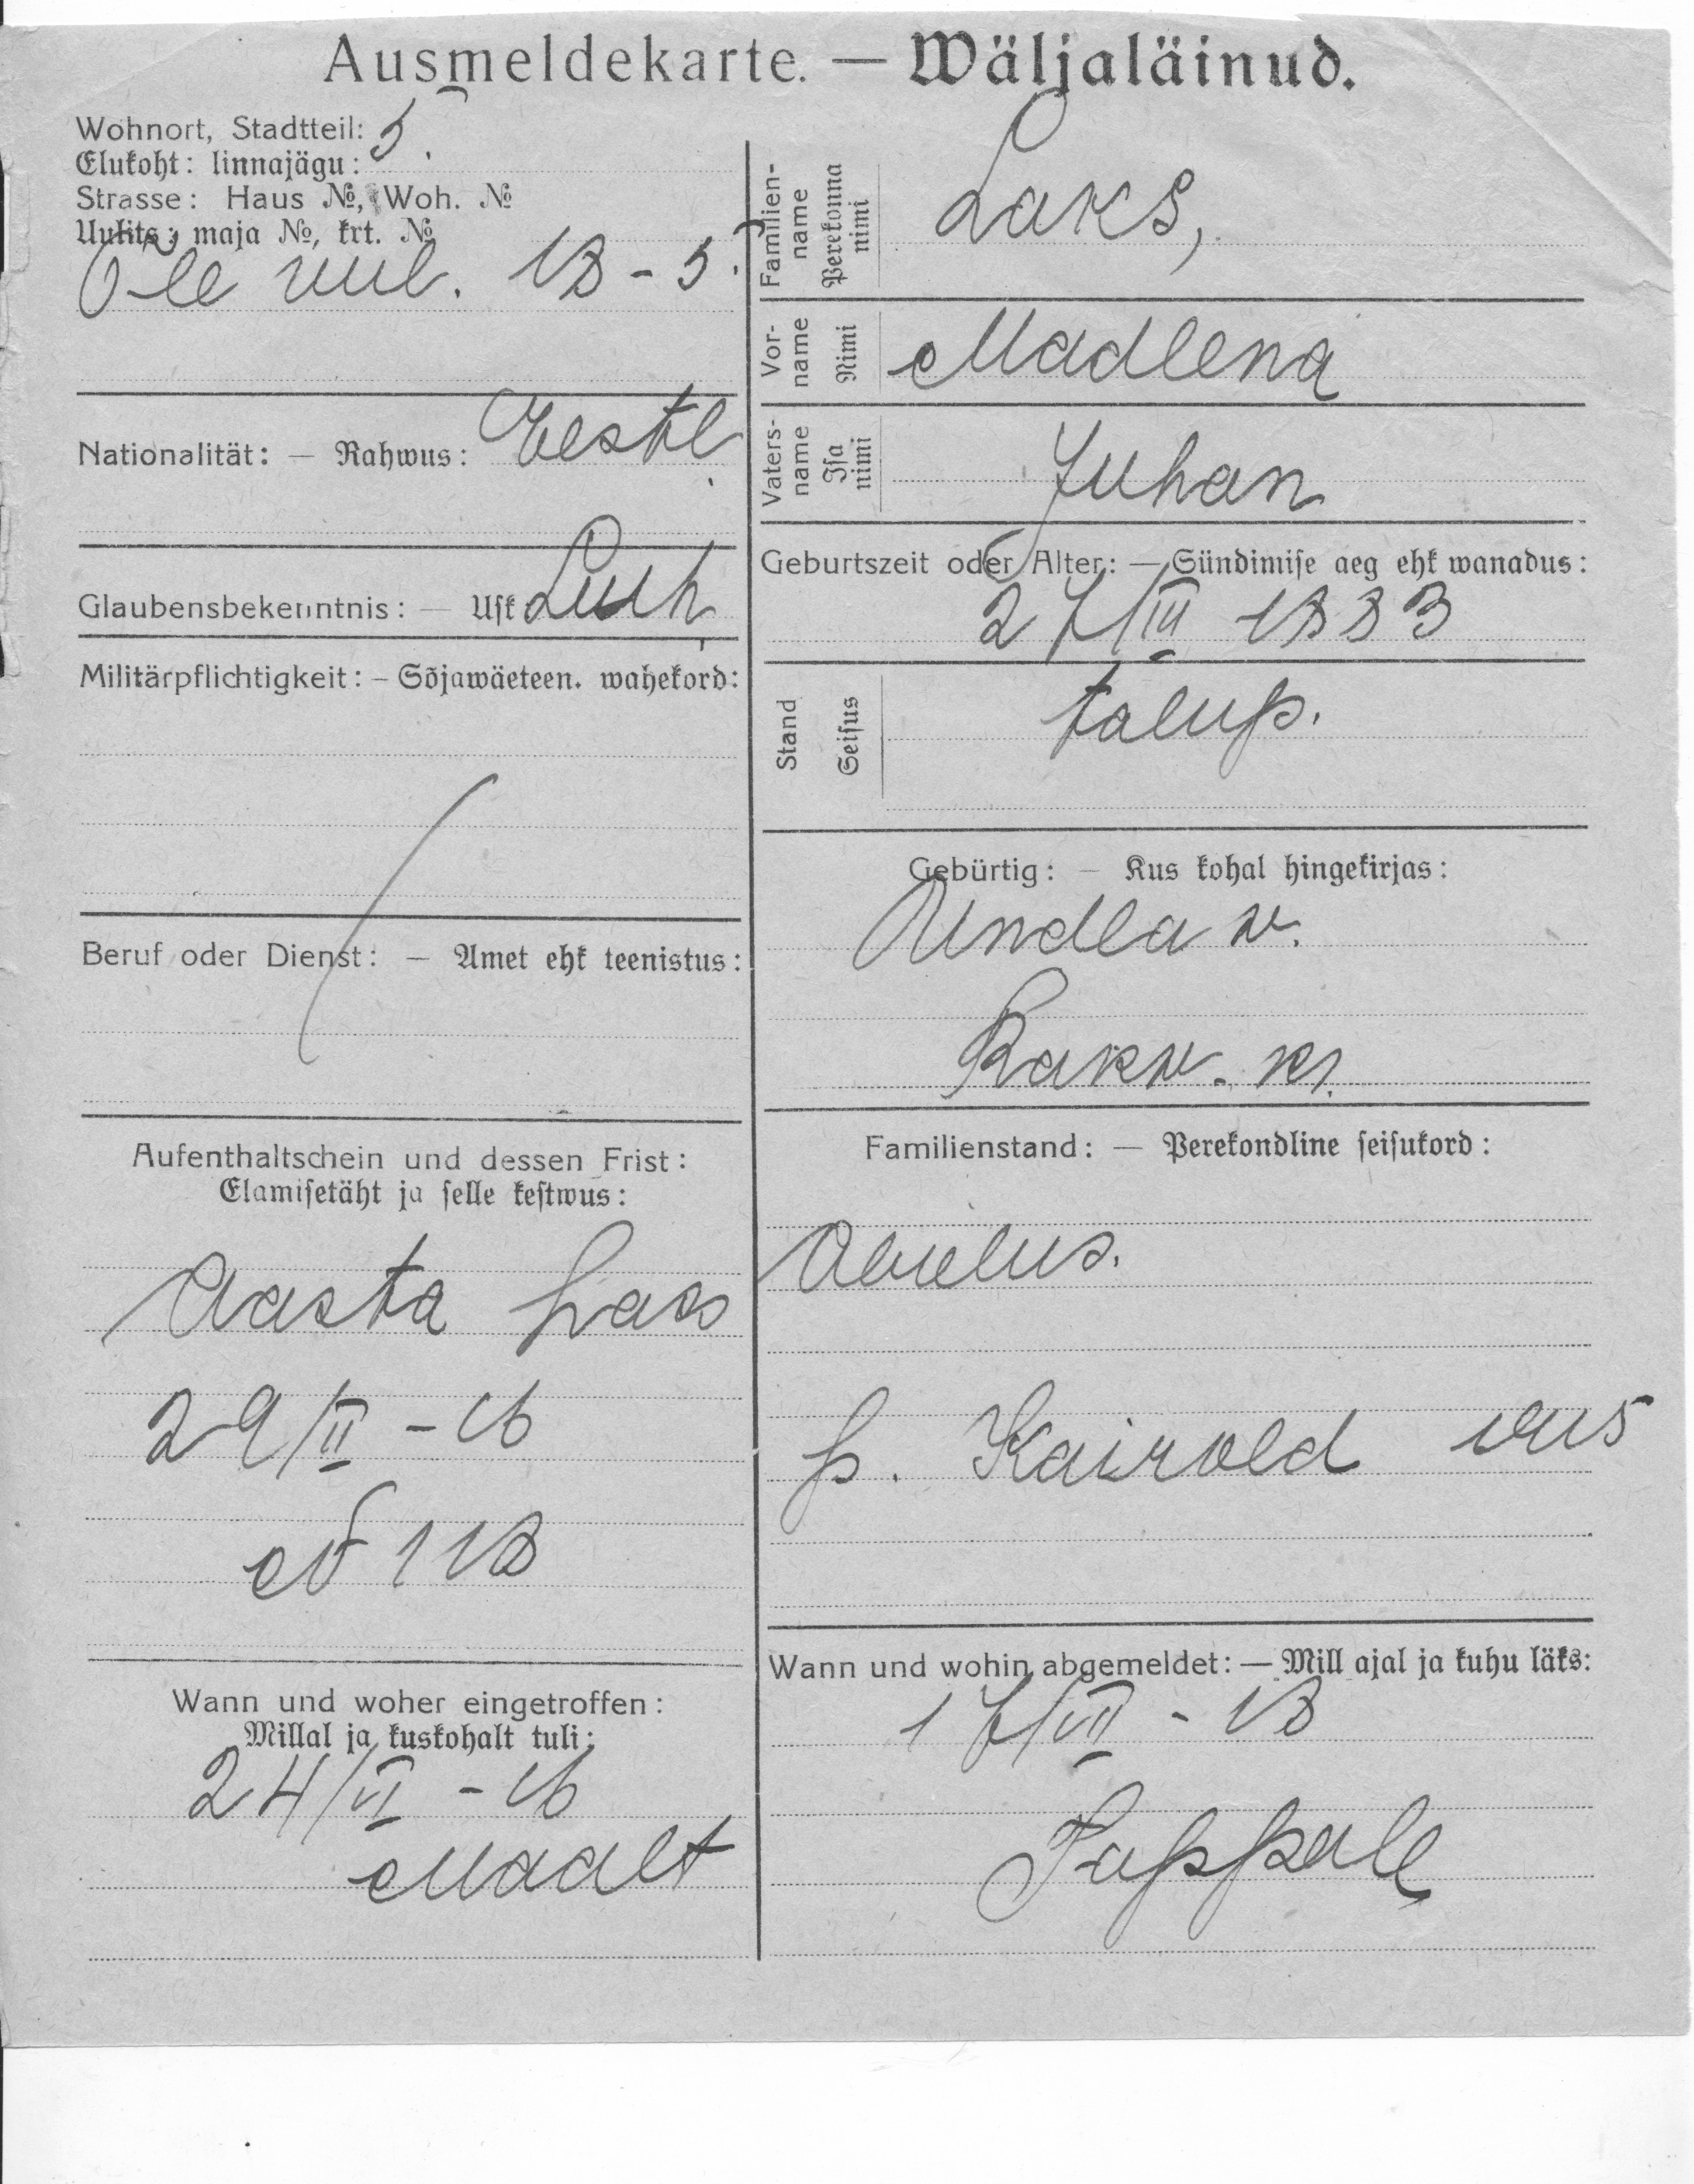 Ausmeldekarte. — Wäljaläinud.
Wohnort, Stadtteil: 5.
Elukoht: linnajägu:
Strasse: Haus №, Woh. №
Uulits: maja №, krt. №
Õle uul. 18 - 5.
Nationalität: — Rahwus: Eestl.
Glaubensbekenntnis: — Usk Luth.
Militärpflichtigkeit: – Sõjawäeteen. wahekord:
Beruf oder Dienst: — Amet ehk teenistus:
Aufenthaltschein und dessen Frist:
Elamisetäht ja selle kestwus:
Aasta pass
29/II - 16
№ 118
Wann und woher eingetroffen:
Millal ja kuskohalt tuli:
24/VI - 16
Maalt
Familien-name Perekonna nimi Laks,
Vor-name Nimi Madlena
Vaters-name Isa nimi Juhan
Geburtszeit oder Alter: — Sündimise aeg ehk wanadus:
27/III 1883
Stand Seisus talup.
Gebürtig: — Kus kohal hingekirjas:
Undla w.
Rakw. kr.
Familienstand: — Perekondline seisukord:
Abielus.
p.
Wann und wohin abgemeldet: — Mill ajal ja kuhu läks:
17/VII - 18